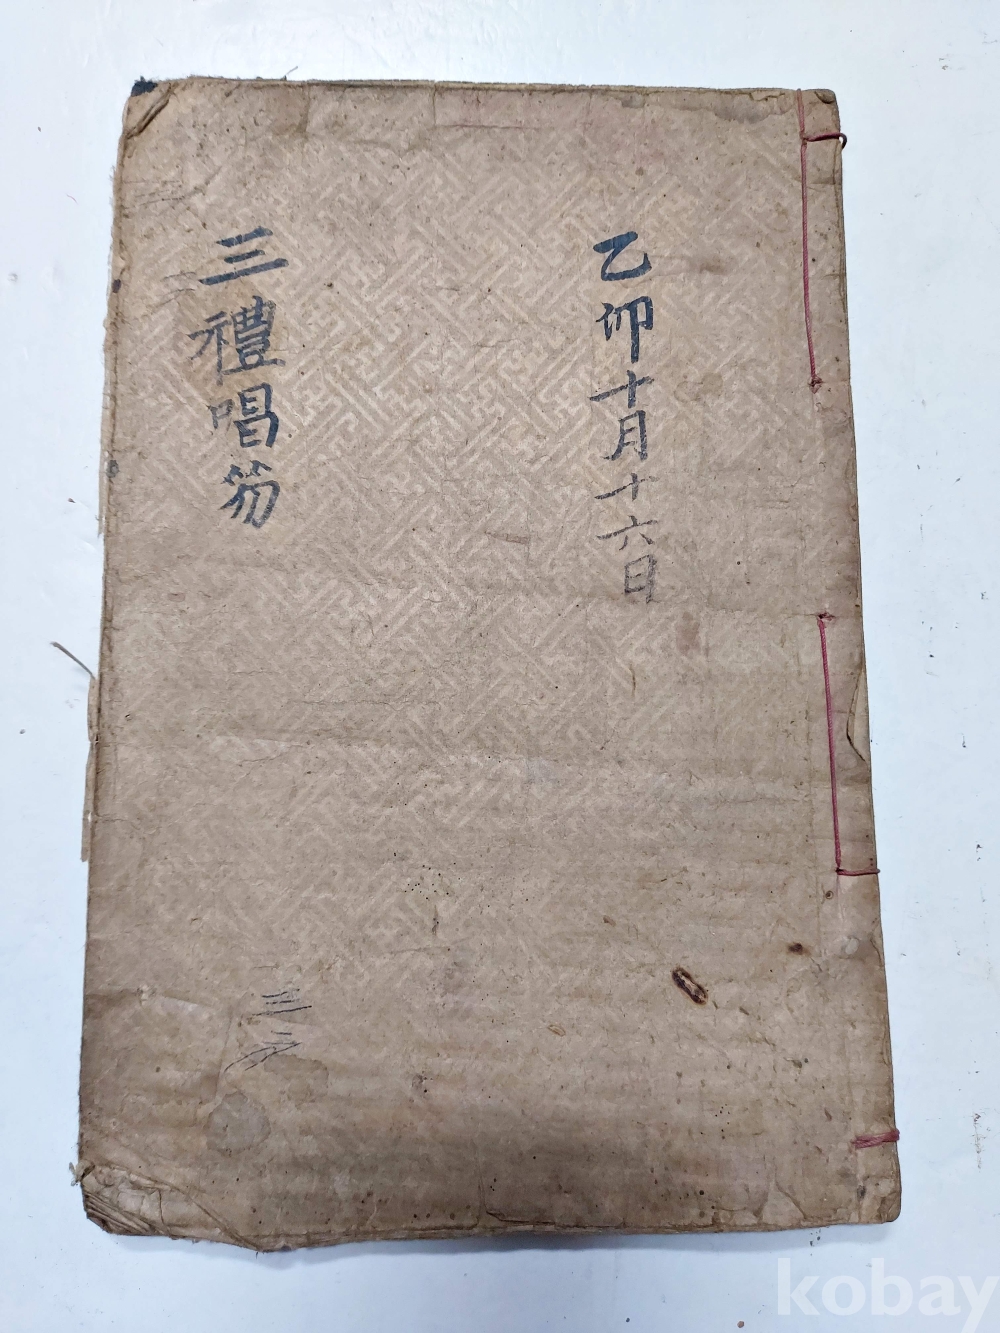 乙卯十月十六日
三禮唱笏
kobay